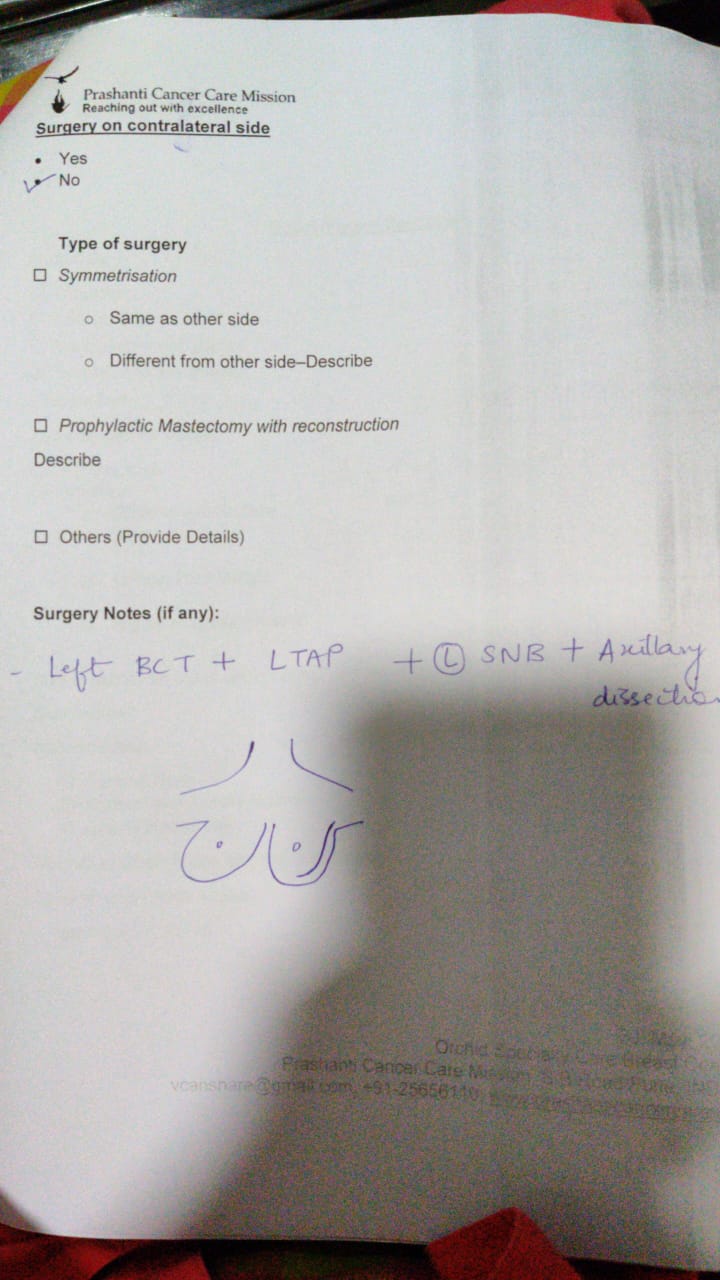 Prashanti Cancer Care Mission
Reaching out with excellence
Surgery on contralateral side
• Yes
• No
Type of surgery
☐ Symmetrisation
o Same as other side
o Different from other side–Describe
☐ Prophylactic Mastectomy with reconstruction
Describe
☐ Others (Provide Details)
Surgery Notes (if any):
- Left BCT + LTAP + Ⓛ SNB + Axillary
dissection
Orchid Speciality Care Breast
Prashanti Cancer Care Mission
vcanshare@gmail.com, +91-25656110